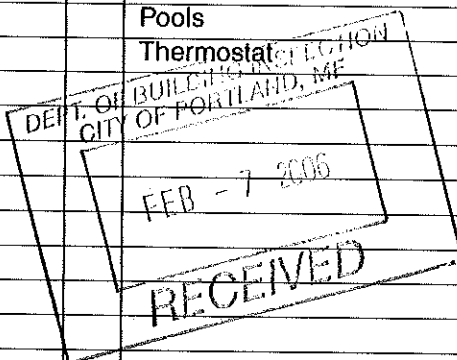 Pools
Thermostat
DEPT. OF BUILDING INSPECTION
CITY OF PORTLAND, ME
FEB - 7 2006
RECEIVED